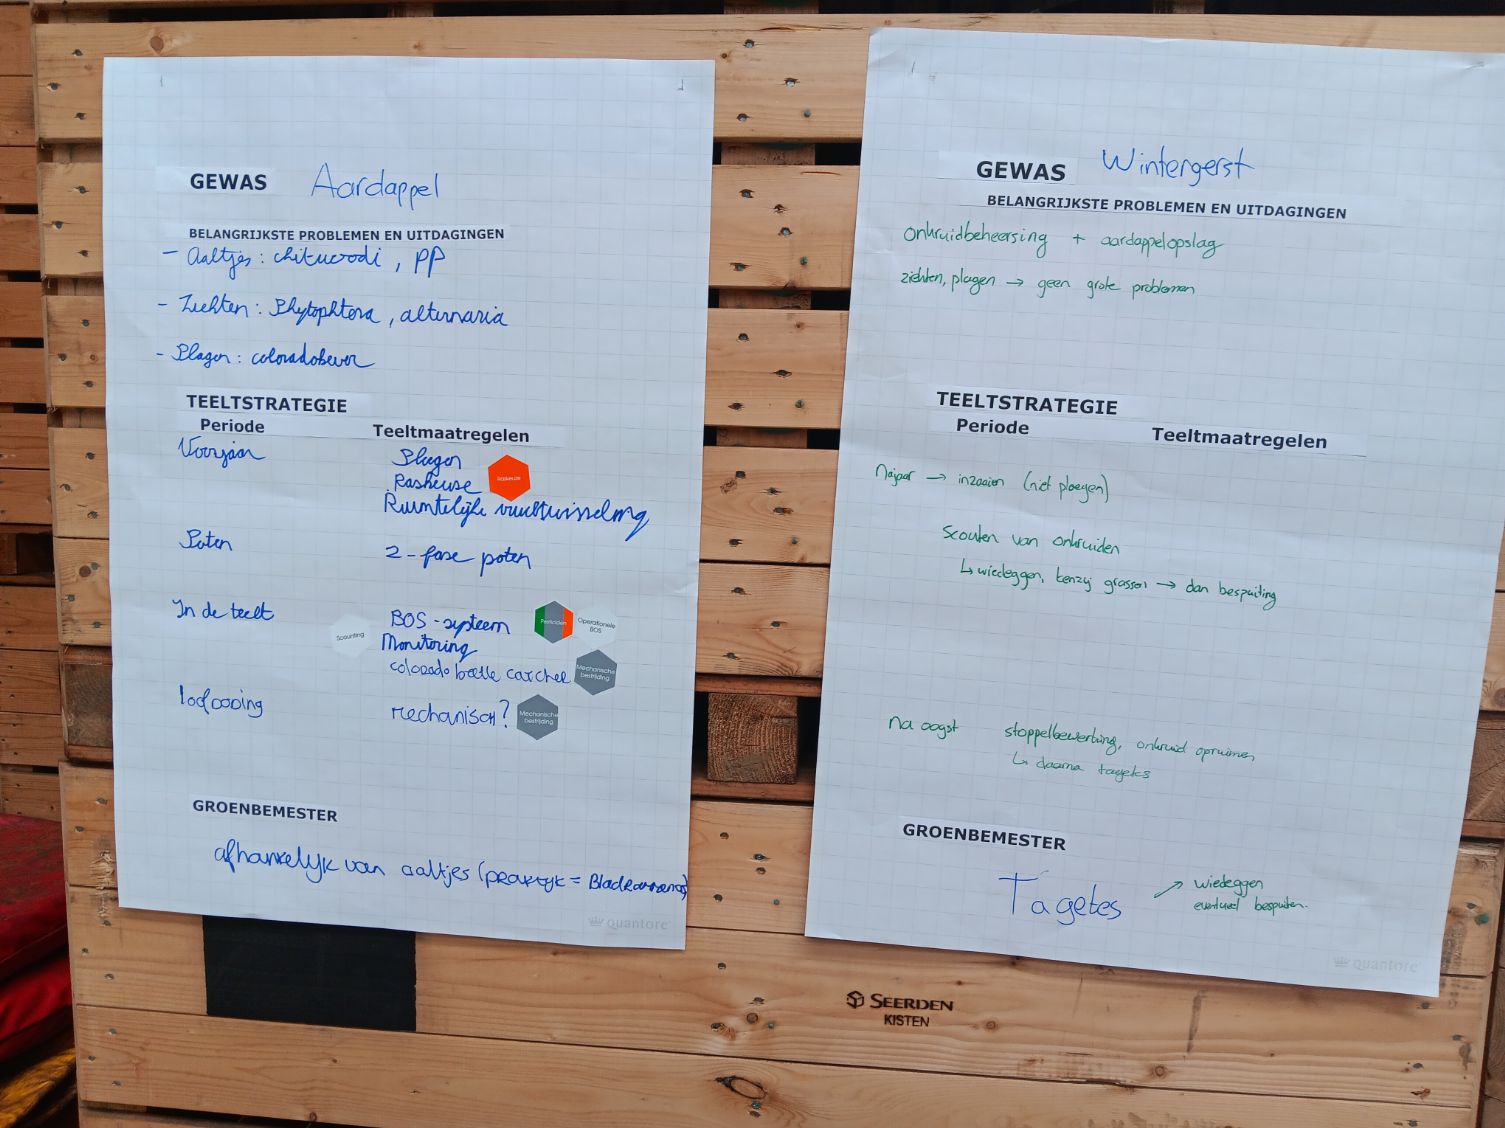 GEWAS Aardappel
BELANGRIJKSTE PROBLEMEN EN UITDAGINGEN
- Aaltjes: chitwoodi, PP
- Ziekten: Phytophtora, alternaria
- Plagen: coloradokever
TEELTSTRATEGIE
Periode Teeltmaatregelen
Voorjaar Ploegen
Raskeuze
Ruimtelijke vruchtwisseling
Poten 2-fase poten
In de teelt BOS-systeem Pesticiden Operationele BOS
Scouting Monitoring
colorado beetle catcher Mechanische bestrijding
loofdoding mechanisch? Mechanische bestrijding
GROENBEMESTER
afhankelijk van aaltjes (praktijk = Bladrammenas)
quantore
GEWAS Wintergerst
BELANGRIJKSTE PROBLEMEN EN UITDAGINGEN
Onkruidbeheersing + aardappelopslag
ziekten, plagen → geen grote problemen
TEELTSTRATEGIE
Periode Teeltmaatregelen
Najaar → inzaaien (niet ploegen)
Scouten van onkruiden
↳ wiedeggen, tenzij grassen → dan bespuiting
Na oogst stoppelbewerking, onkruid opruimen
↳ daarna tagetes
GROENBEMESTER
Tagetes → wiedeggen
eventueel bespuiten.
quantore
SEERDEN
KISTEN